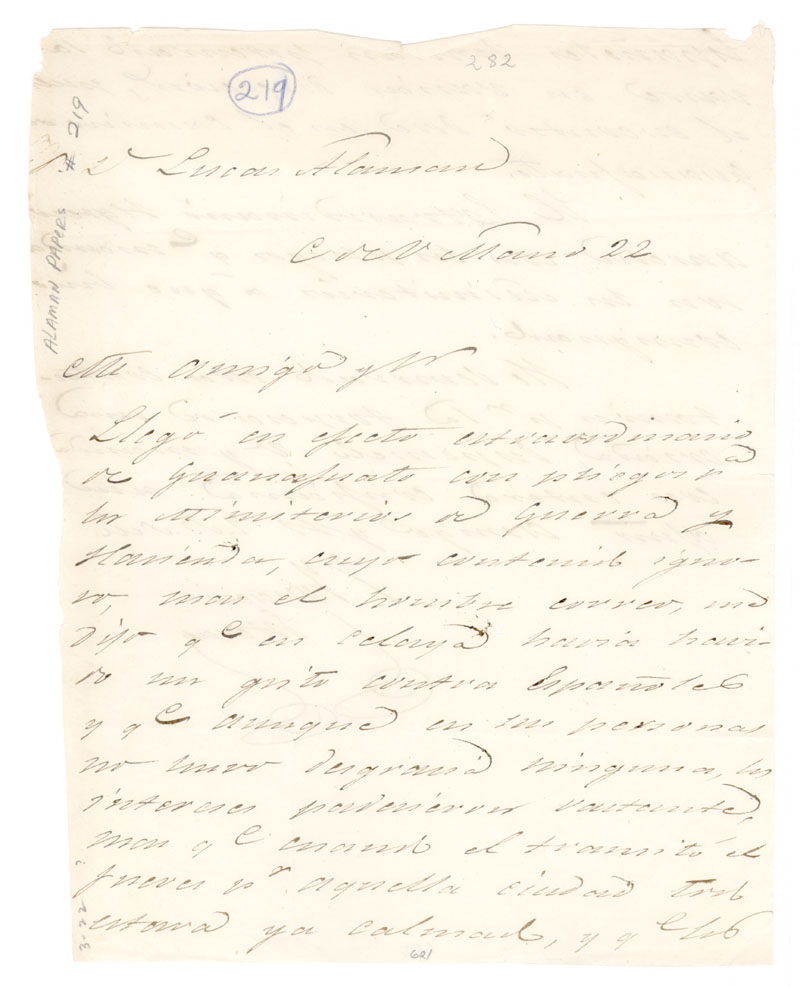 282
219
ALAMAN PAPERS # 219
Lucas Alaman
C de V Marzo 22
Mi amigo y
Llegó en efecto extraordinario
de Guanajuato con pliegos pa
los Ministerios de Guerra y
Hacienda, cuyo contenido igno-
ro, mas el hombre correo, me
dijo qe en celaya havia havi-
do un grito contra Españoles
y qe aunque en sus personas
no huvo desgracia ninguna, los
intereses padecieron vastante,
mas qe cuando el transitó el
jueves pr aquella ciudad todo
estava ya calmado, y qe los
3-22
621